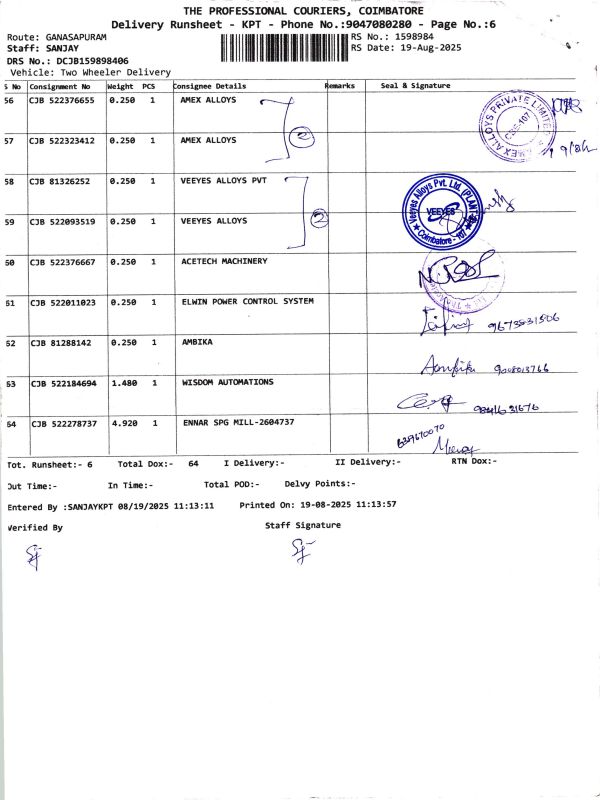 THE PROFESSIONAL COURIERS, COIMBATORE
Delivery Runsheet - KPT - Phone No.:9047080280 - Page No.:6
Route: GANASAPURAM RS No.: 1598984
Staff: SANJAY RS Date: 19-Aug-2025
DRS No.: DCJB159898406
Vehicle: Two Wheeler Delivery
S No Consignment No Weight PCS Consignee Details Remarks Seal & Signature
56 CJB 522376655 0.250 1 AMEX ALLOYS
2
57 CJB 522323412 0.250 1 AMEX ALLOYS
AMEX ALLOYS PRIVATE LIMITED
58 CJB 81326252 0.250 1 VEEYES ALLOYS PVT
2
59 CJB 522093519 0.250 1 VEEYES ALLOYS
Veeyes Alloys Pvt. Ltd. (PLANT
VEEYES
Coimbatore - 107
60 CJB 522376667 0.250 1 ACETECH MACHINERY
61 CJB 522011023 0.250 1 ELWIN POWER CONTROL SYSTEM
62 CJB 81288142 0.250 1 AMBIKA
Ambika
63 CJB 522184694 1.480 1 WISDOM AUTOMATIONS
64 CJB 522278737 4.920 1 ENNAR SPG MILL-2604737
Tot. Runsheet:- 6 Total Dox:- 64 I Delivery:- II Delivery:- RTN Dox:-
Out Time:- In Time:- Total POD:- Delvy Points:-
Entered By :SANJAYKPT 08/19/2025 11:13:11 Printed On: 19-08-2025 11:13:57
Verified By Staff Signature